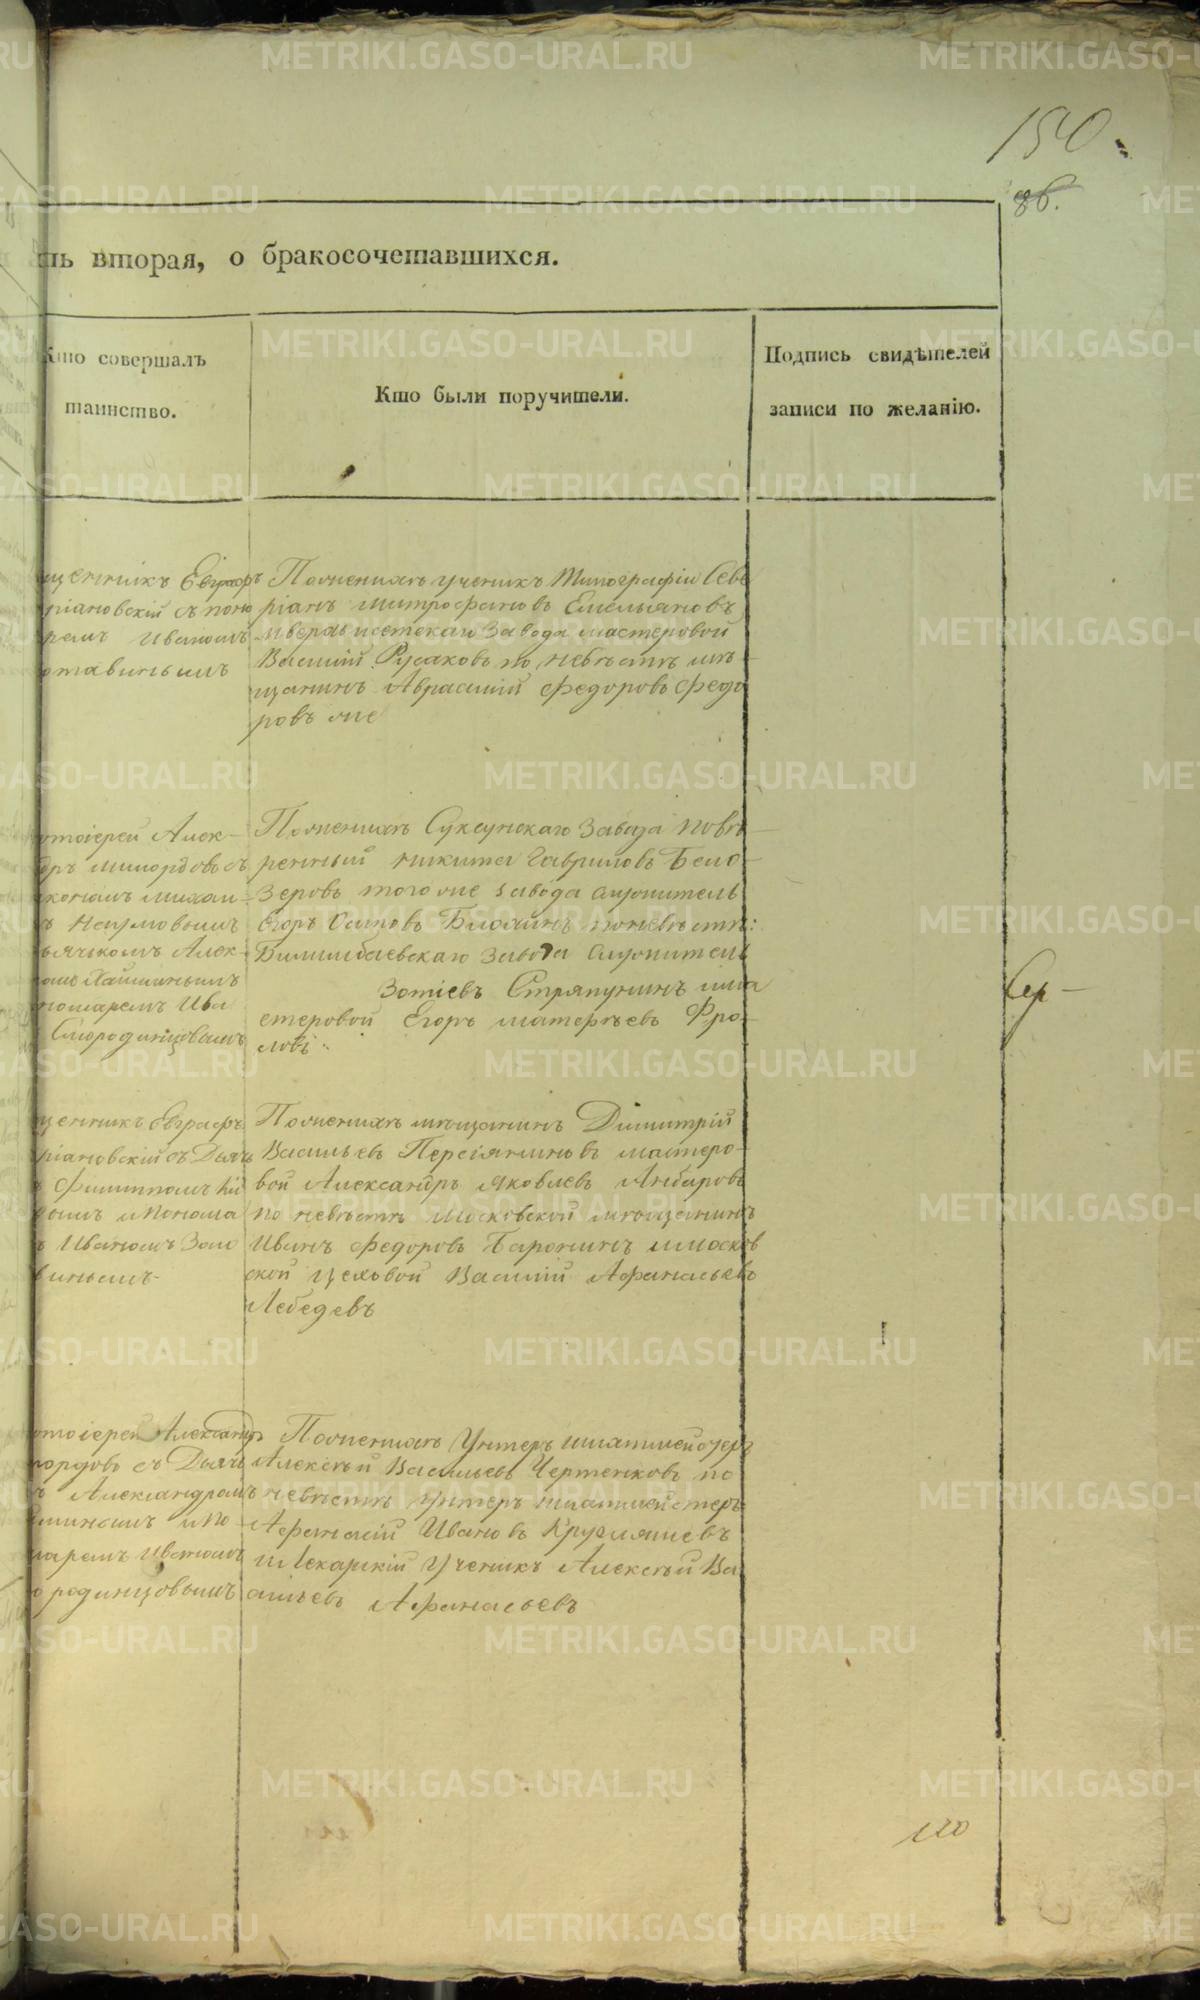 150.
86.
ть вторая, о бракосочетавшихся.
Кто совершалъ
таинство.
Кто были поручители.
Подпись свидѣтелей
записи по желанію.
щенникъ Евграфъ
ріановскій съ поно
ремъ Иваномъ
Поженихѣ ученикъ Типографіи Севе
ріанъ Митрофановъ Емельяновъ
Верхъисетскаго завода мастеровой
Василій Русаковъ по невѣстѣ мѣ
щанинъ Авраамій Федоровъ Федо
ровъ же
отоіерей Алек-
ндръ Милордовъ съ
акономъ Михаи-
ъ Наумовымъ
ьячкомъ Алек-
номаремъ Ива
Смородинцовымъ
Поженихѣ Суксунскаго завода повѣ-
ренный Никита Гавриловъ Бело-
зеровъ того же завода служитель
Егоръ Осиповъ Блохинъ поневѣстѣ:
Билимбаевскаго завода служитель
Зотіевъ Стряпунинъ има
стеровой Егоръ Матфѣевъ Фро-
ловъ.
щенникъ Евграфъ
ріановскій съ Дьяч
Филиппомъ
ымъ иПонома
ъ Иваномъ Зало
виннымъ-
Поженихѣ мѣщанинъ Димитрій
Васильевъ Персіяниновъ мастеро-
вой Александръ Яковлевъ Анбаровъ
по невѣстѣ Московской мѣщанинъ
Иванъ Федоровъ Баронинъ имосков
ской цеховой Василій Афанасьевъ
Лебедевъ
отоіерей Александръ
лордовъ съ Дьяч
ъ Александромъ
иПо-
маремъ Иваномъ
ородинцовымъ
Поженихѣ Унтеръ шихтмейстеръ
Алексѣй Васильевъ Чертенковъ по
невѣстѣ Унтеръ шихтмейстеръ
Афанасій Ивановъ Кругляшевъ
иЛекарскій Ученикъ Алексѣй Ва
сильевъ Афанасьевъ
Сер-
120
METRIKI.GASO-URAL.RU